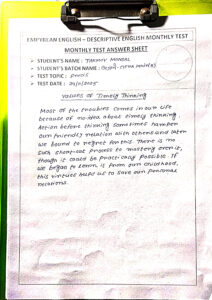 EMPYREAN ENGLISH – DESCRIPTIVE ENGLISH MONTHLY TEST
MONTHLY TEST ANSWER SHEET
STUDENT'S NAME : TANMOY MONDAL
STUDENT'S BATCH NAME :
TEST TOPIC :
TEST DATE :
Values of Timely Thinking
Most of the troubles comes in our life
because of no-idea about timely thinking.
Action before thinking sometimes hamper
our friendly relation with others and later
we bound to regret for this. There is no
such cheap-cut process to mastery over it,
though it could be practically possible. If
we began to learn it from our childhood,
this virtues help us to save our personal
relations.